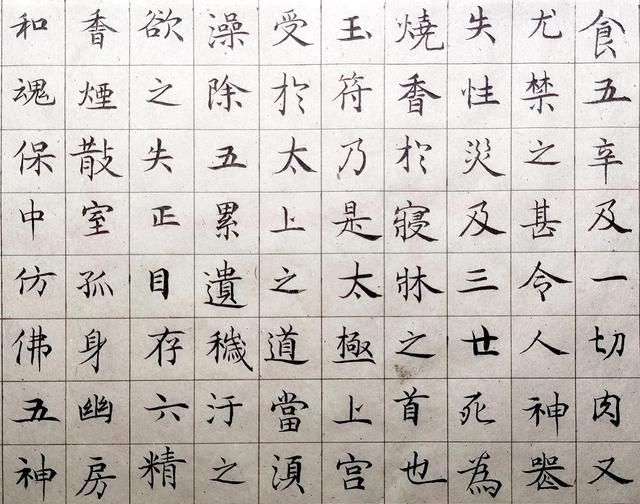 食五辛及一切肉又
尤禁之甚令人神喪
失性災及三世死為
燒香於寢牀之首也
玉符乃是太極上宮
受於太上之道當須
澡除五累遺穢汙之
欲之失正目存六精
香煙散室孤身幽房
和魂保中仿佛五神